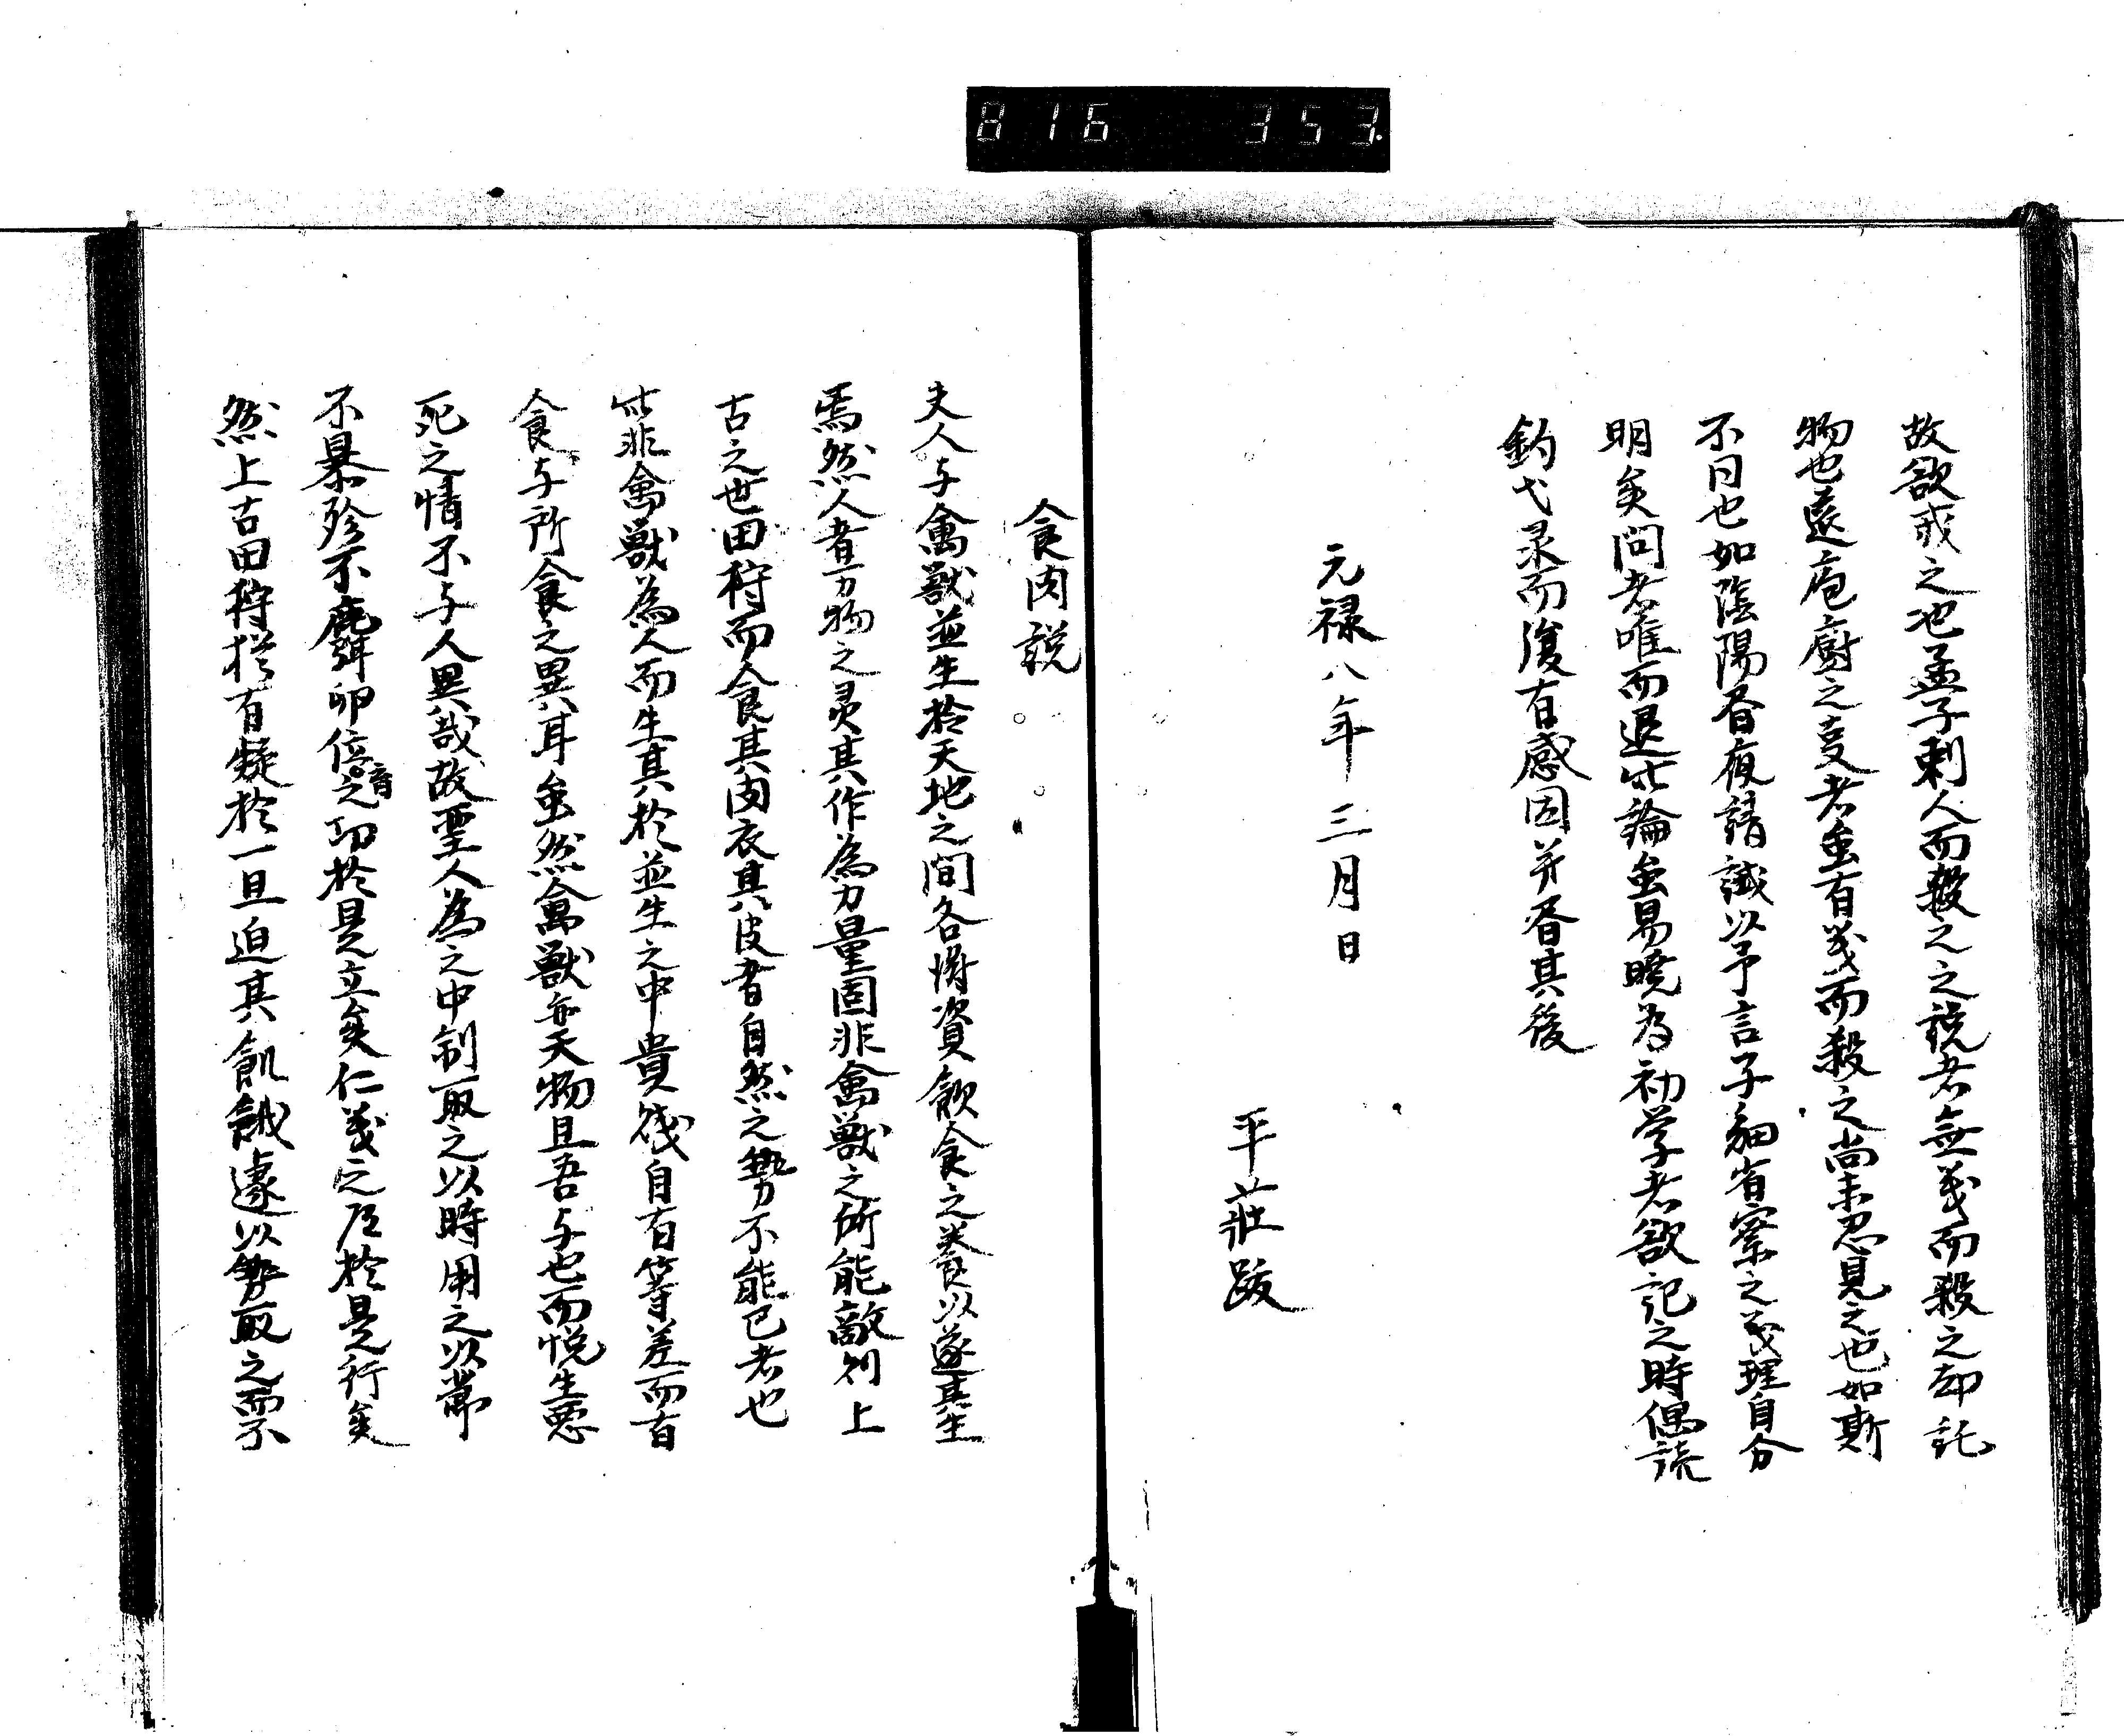 816 353
故欲戒之也孟子刺人而殺之之説者無義而殺之却託
物也遠庖廚之変者虽有義而殺之尚未忍見之也如斯
不同也如陰陽昼夜請誠以予言子細省察之義理自分
明矣問者唯而退此論虽易曉為初学者欲記之時偶読
釣弋录而復有感因并書其後
元禄八年三月日
平莊跋
食肉説
夫人与禽獣並生於天地之間各備資飲食之養以遂其生
焉然人者万物之灵其作為力量固非禽獣之所能敵则上
古之世田狩而食其肉衣其皮者自然之勢不能已者也
此非禽獣為人而生其於並生之中貴賤自有等差而有
食与所食之異耳虽然禽獣亦天物且吾与也而悦生悪
死之情不与人異哉故聖人為之中制取之以時用之以節
不暴殄不麛卵倍之育功於是立矣仁義之通於是行矣
然上古田狩猶有疑於一旦迫其飢餓遽以勢取之而不